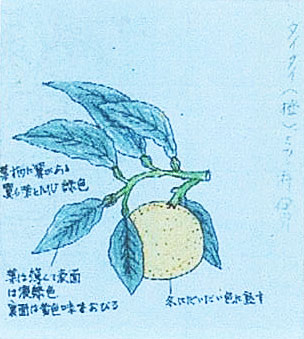 ダイダイ(橙)ミカン科
葉柄に翼がある
翼も葉と同じ緑色
葉は薄くて表面
は濃緑色
裏面は黄色味をおびる
冬にだいだい色に熟す